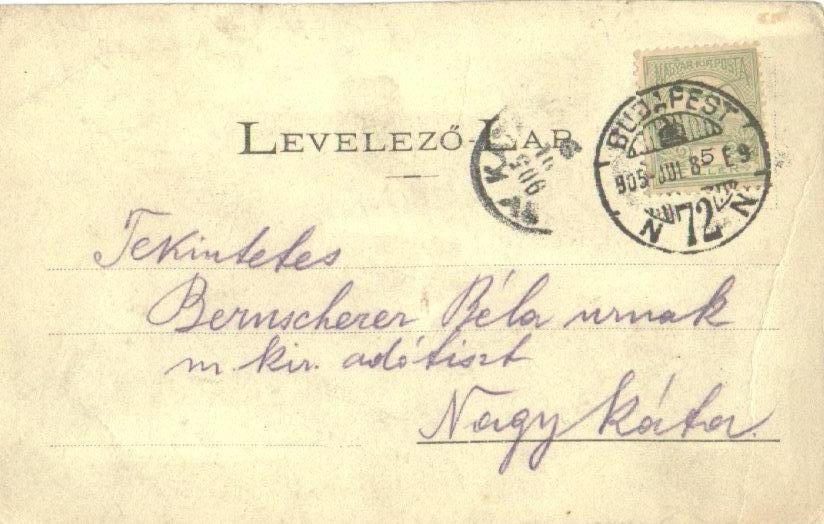 MAGYAR·KIR·POSTA
BUDAPEST
LEVELEZŐ-LAP
905 JUL 8 5 E 9
N 72 N
Tekintetes
Bernscherer Béla urnak
m. kir. adótiszt
Nagy káta.